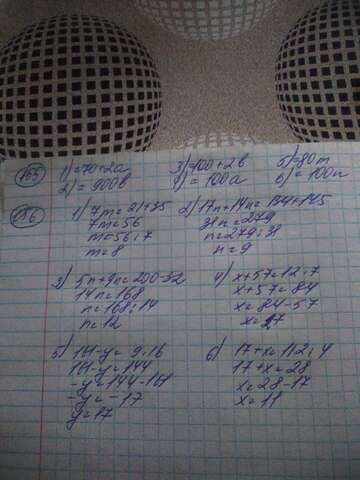 165 1) =70+2a 3) =100+2b 5) =80m
2) = 900b 4) = 100a 6) = 100n
186 1) 7m = 21+35 2) 17n+14n = 134+145
7m = 56 31n = 279
m = 56:7 n = 279:31
m = 8 n = 9
3) 5n+9n = 200-32 4) x+57 = 12.7
14n = 168 x+57 = 84
n = 168:14 x = 84-57
n = 12 x = 27
5) 161-y = 9.16 6) 17+x = 112:4
161-y = 144 17+x = 28
-y = 144-161 x = 28-17
-y = -17 x = 11
y = 17